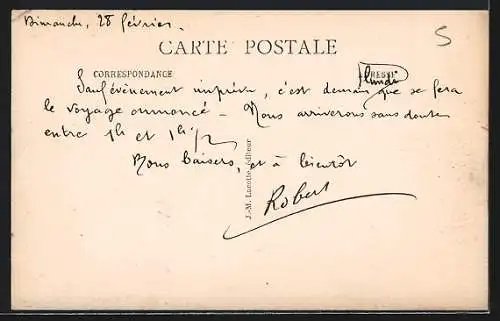 Dimanche, 28 février.
5
CARTE POSTALE
CORRESPONDANCE
lundi
Sauf événement imprévu, c'est demain que se fera
le voyage annoncé - Nous arriverons sans doute
entre 1h et 1h 1/2
Bons baisers, et à bientôt
Robert
J.-M. Lacotte, éditeur